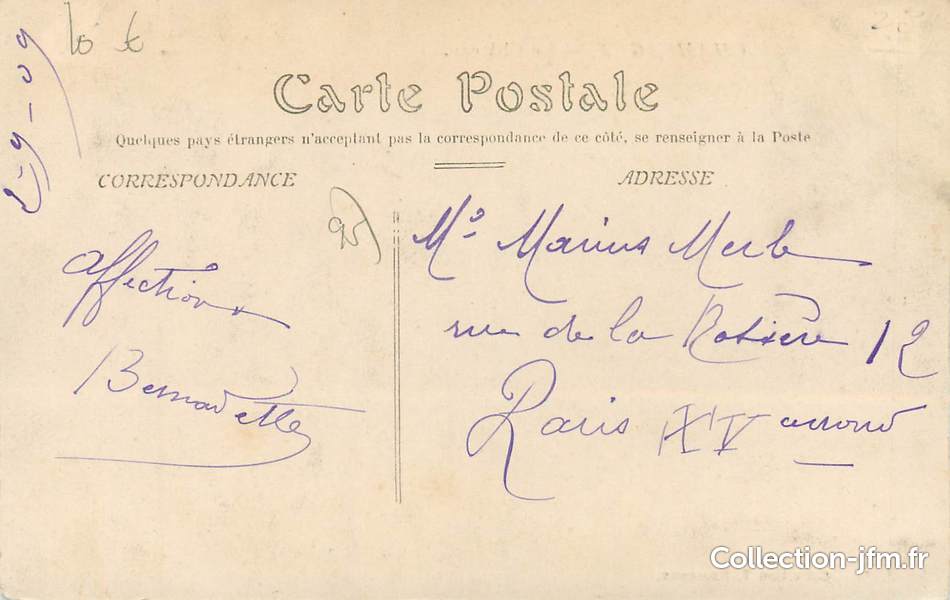 10 t
2-9-09
Carte Postale
Quelques pays étrangers n'acceptant pas la correspondance de ce côté, se renseigner à la Poste
CORRESPONDANCE
ADRESSE
95
Affection
Bernadette
Mr Marius Merle
rue de la Rosière 12
Paris XV arrond
Collection-jfm.fr